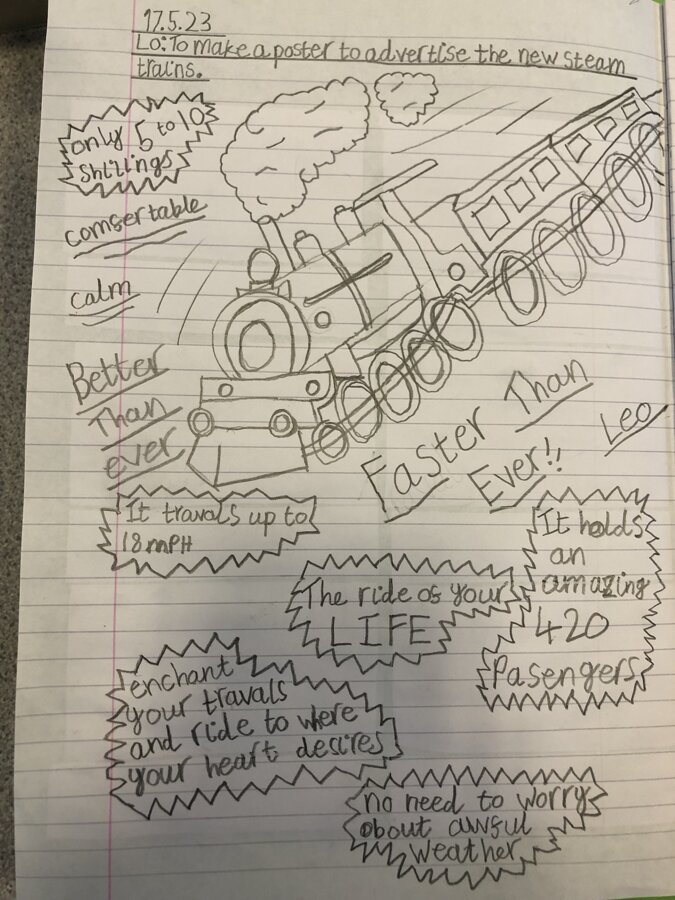 17.5.23
LO: To make a poster to advertise the new steam
trains.
only 5 to 10
Shillings
comfertable
calm
Better
Than
ever
Faster Than
Ever!!
Leo
It travals up to
18 mPH
It holds
an
amazing
420
Pasengers
The ride of your
LIFE
enchant
your travals
and ride to where
your heart desires
no need to worry
about awful
weather